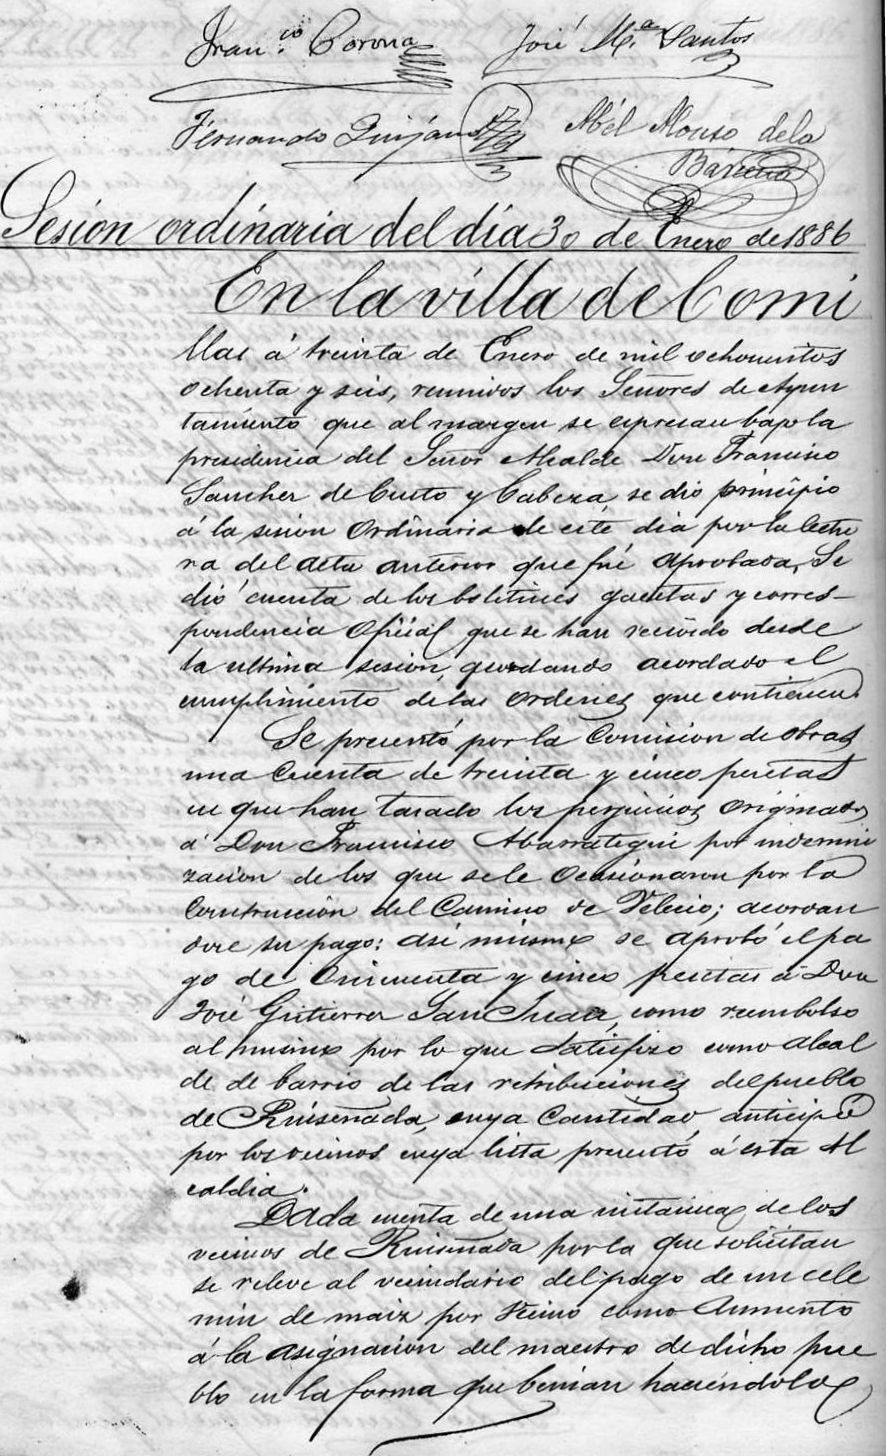 Fran.co Corona José M.a Santos
Fernando Quijano Abél Alonso de la
Bárcena
Sesión ordinaria del día 30 de Enero de 1886
En la villa de Comi
llas á treinta de Enero de mil ochocientos
ochenta y seis, reunidos los Señores de Ayun
tamiento que al margen se espresan bajo la
presidencia del Señor Alcalde Don Francisco
Sanchez de Cueto y Cabeza se dio principio
á la sesion Ordinaria de este dia por la lectu
ra del acta anterior que fué aprobada, Se
dió cuenta de los boletines gacetas y corres-
pondencia Oficial que se han recibido desde
la ultima sesion, quedando acordado el
cumplimiento de las ordenes que contienen.
Se presentó por la Comision de obras
una Cuenta de treinta y cinco pesetas
en que han tasado los perjuicios originados
á Don Francisco Abarrategui por indemni
zacion de los que se le ocasionaron por la
Construccion del Camino de Velecio; acordan
dose su pago: asi mismo se aprobó el pa
go de cincuenta y cinco pesetas á Don
José Gutierrez San Juan, como reembolso
al mismo por lo que satisfizo como alcal
de de barrio de las retribuciones del pueblo
de Ruiseñada, cuya Cantidad anticipó
por los vecinos cuya lista presentó á esta Al
caldia.
Dada cuenta de una instancia de los
vecinos de Ruiseñada por la que solicitan
se releve al vecindario del pago de un cele
min de maiz por vecino como Aumento
á la asignacion del maestro de dicho pue
blo en la forma que benian haciéndolo